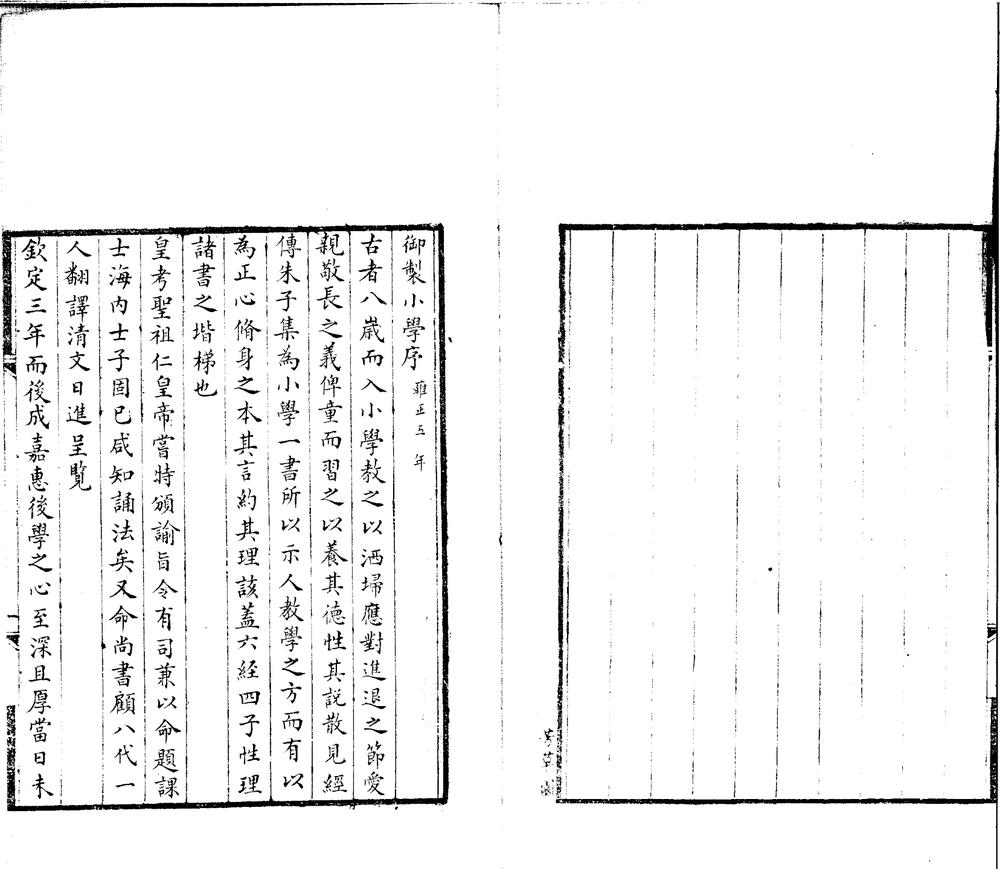 御製小學序 雍正五年
古者八歲而入小學教之以洒埽應對進退之節愛
親敬長之義俾童而習之以養其德性其說散見經
傳朱子集為小學一書所以示人教學之方而有以
為正心脩身之本其言約其理該蓋六經四子性理
諸書之堦梯也
皇考聖祖仁皇帝嘗特頒諭旨令有司兼以命題課
士海內士子固已咸知誦法矣又命尚書顧八代一
人翻譯清文日進呈覽
欽定三年而後成嘉惠後學之心至深且厚當日未
一